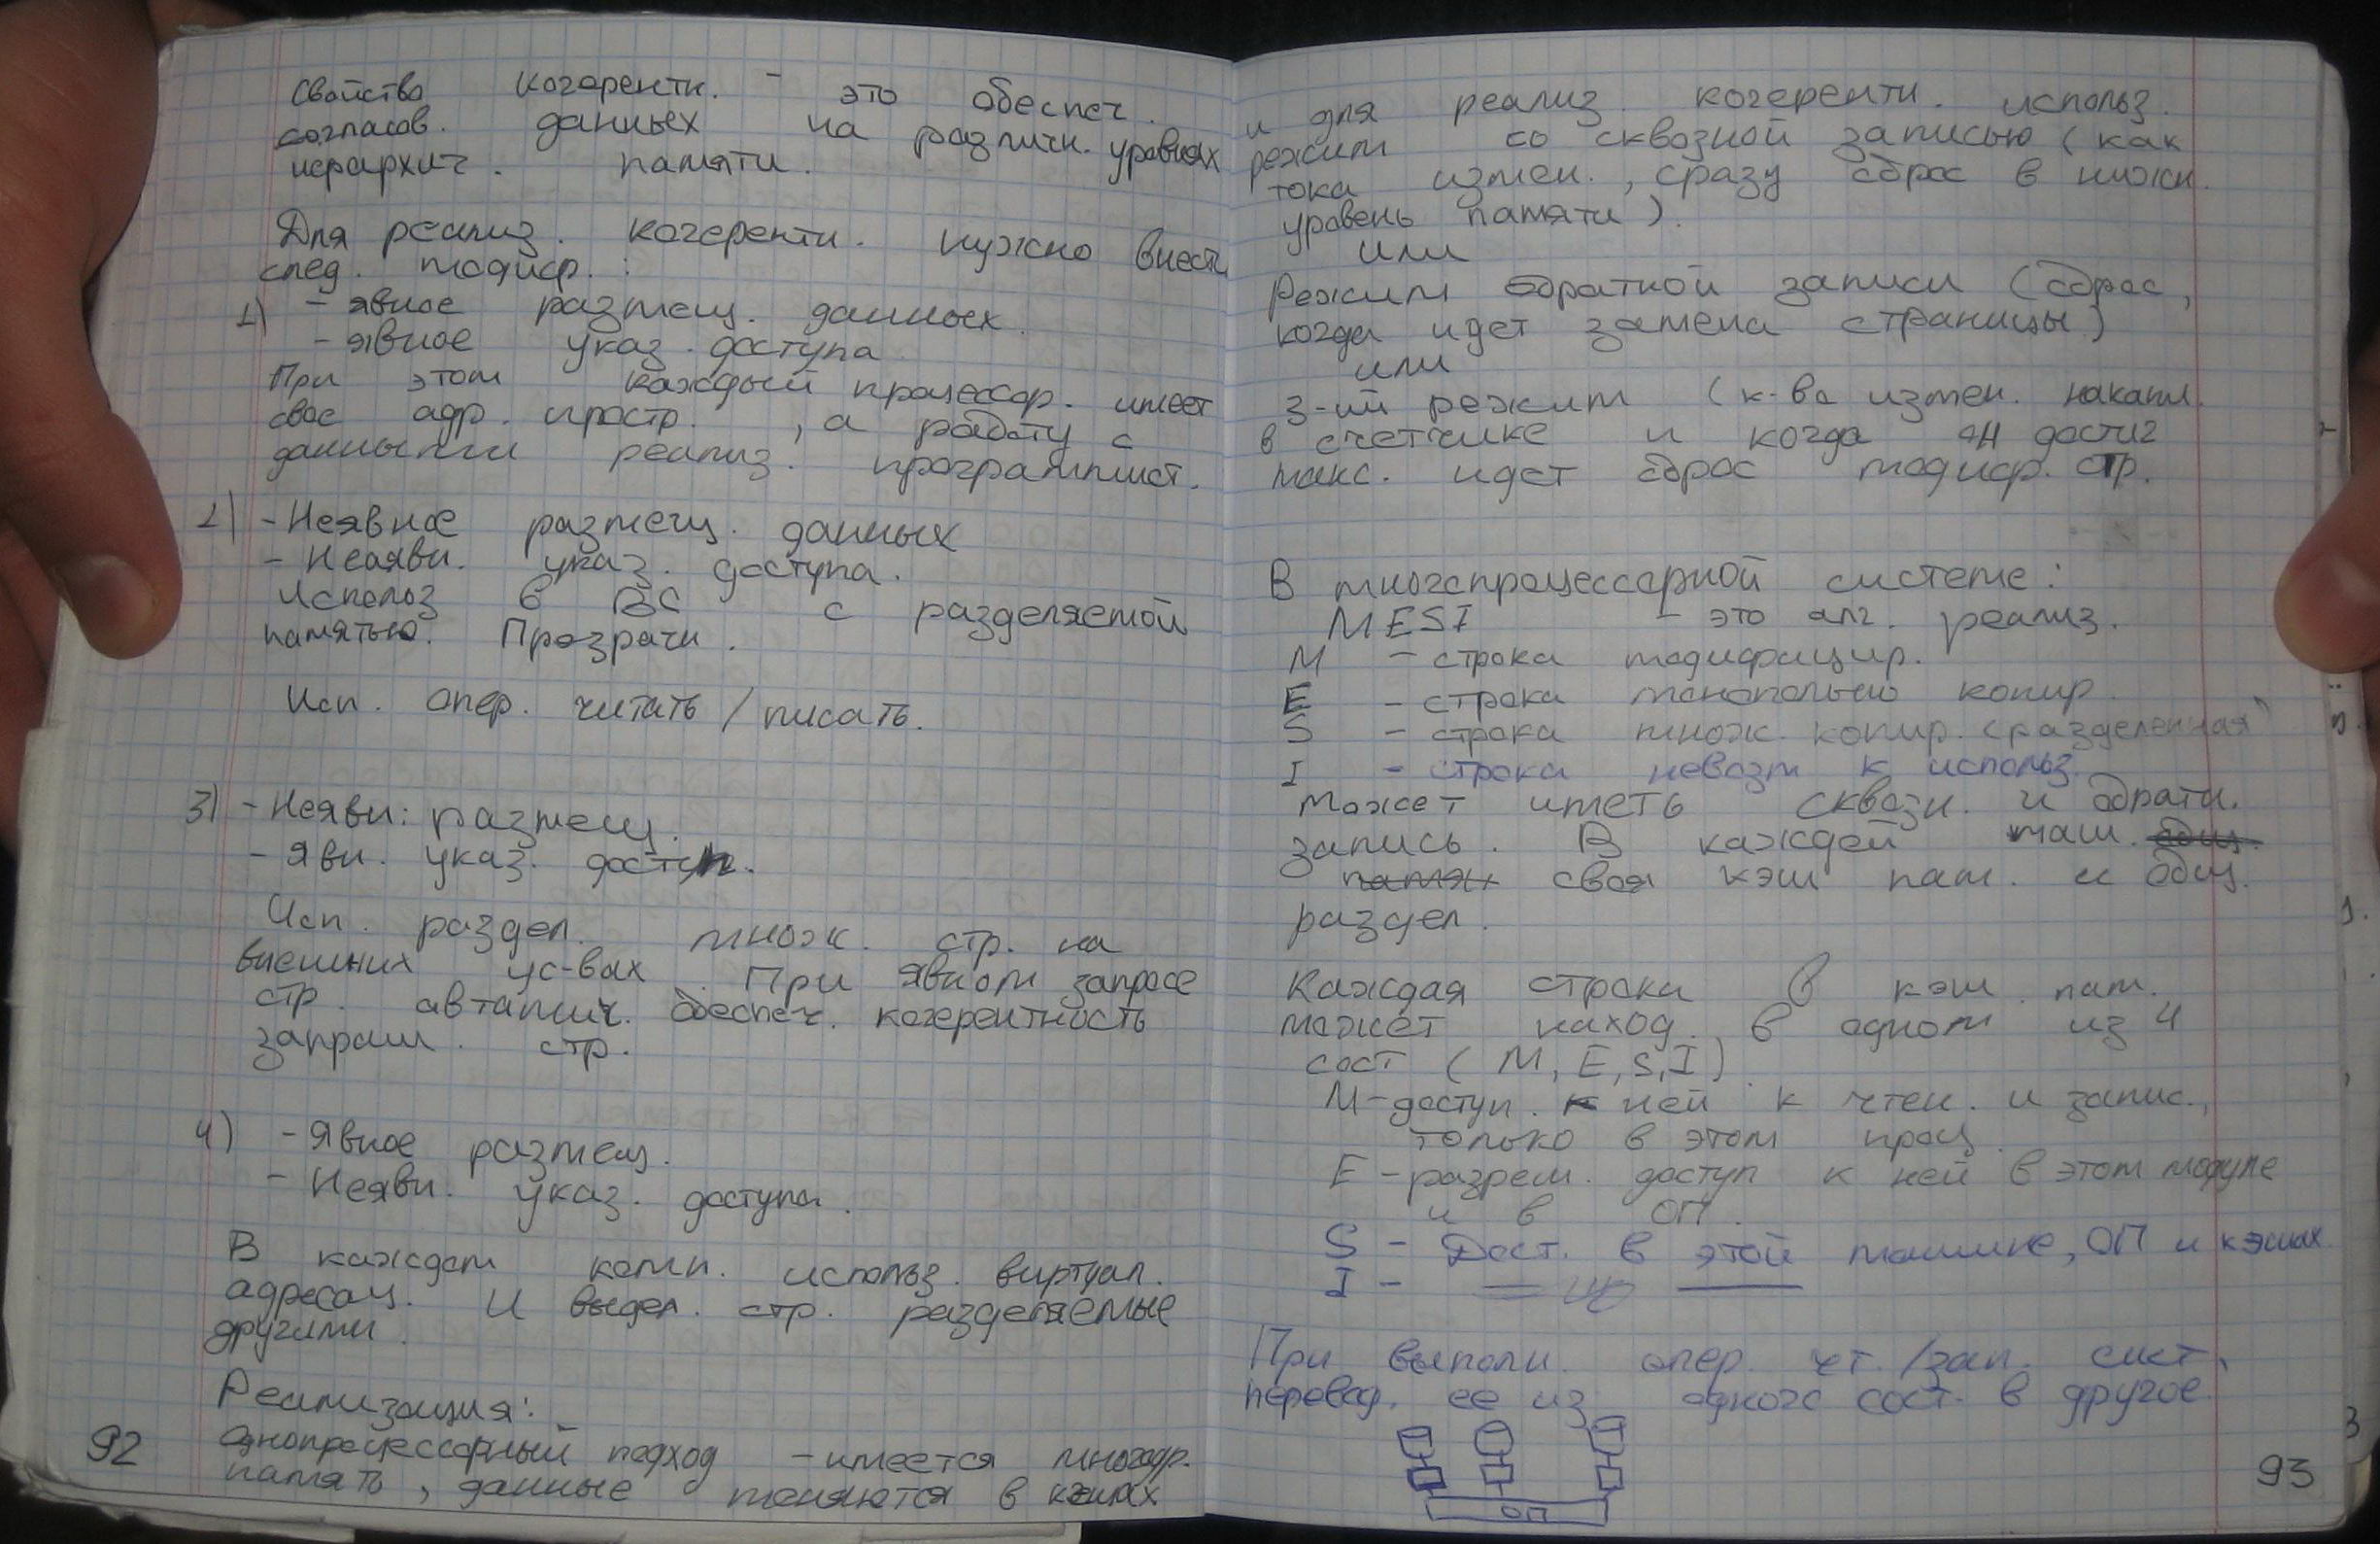 Свойство когерентн. - это обеспеч.
согласов. данных на различн. уровнях
иерархич. памяти.
Для реализ. когерентн. нужно внести
след. модиф. :
1) - явное размещ. данных.
- явное указ. доступа.
При этом каждый процессор. имеет
свое адр. простр. , а работу с
данными реализ. программист.
2) - Неявное размещ. данных
- Неаявн. указ. доступа.
Использ в ВС с разделяемой
памятью. Прозрачн.
Исп. опер. читать / писать.
3) - Неявн: размещ.
- Явн. указ. доступ.
Исп. раздел. множ. стр. на
внешних ус-вах. При явном запросе
стр. автамич. обеспеч. когерентность
запраш. стр.
4) - Явное размещ.
- Неявн. указ. доступа.
В каждом комп. использ. виртуал.
адресац. И выдел. стр. разделяемые
другими.
Реализация:
Однопроцессорный подход - имеется многоур.
память, данные меняются в кэшах
92
и для реализ. когерентн. использ.
режим со сквозной записью (как
тока измен., сразу сброс в нижн.
уровень памяти).
или
Режим обратной записи (сброс,
когда идет замена страницы)
или
3-ий режим (к-во измен. накапл.
в счетчике и когда он достиг
макс. идет сброс модиф. стр.
В многопроцессорной системе:
MESI - это алг. реализ.
M - строка модифицир.
E - строка монопольно копир.
S - строка множ. копир. (разделенная)
I - строка невозм к использ.
может иметь сквозн. и обратн.
запись. В каждой маш. общ.
памят своя кэш пам. и общ.
раздел.
Каждая строка в кэш. пам.
может наход. в одном из 4
сост (M, E, S, I).
M - доступ. к ней к чтен. и запис.,
только в этом проц.
E - разреш. доступ к ней в этом модуле
и в ОП.
S - Дост. в этой машине, ОП и кэшах
I -
При выполн. опер. чт. /зап. сист.
перевод. ее из одного сост. в другое.
ОП
93